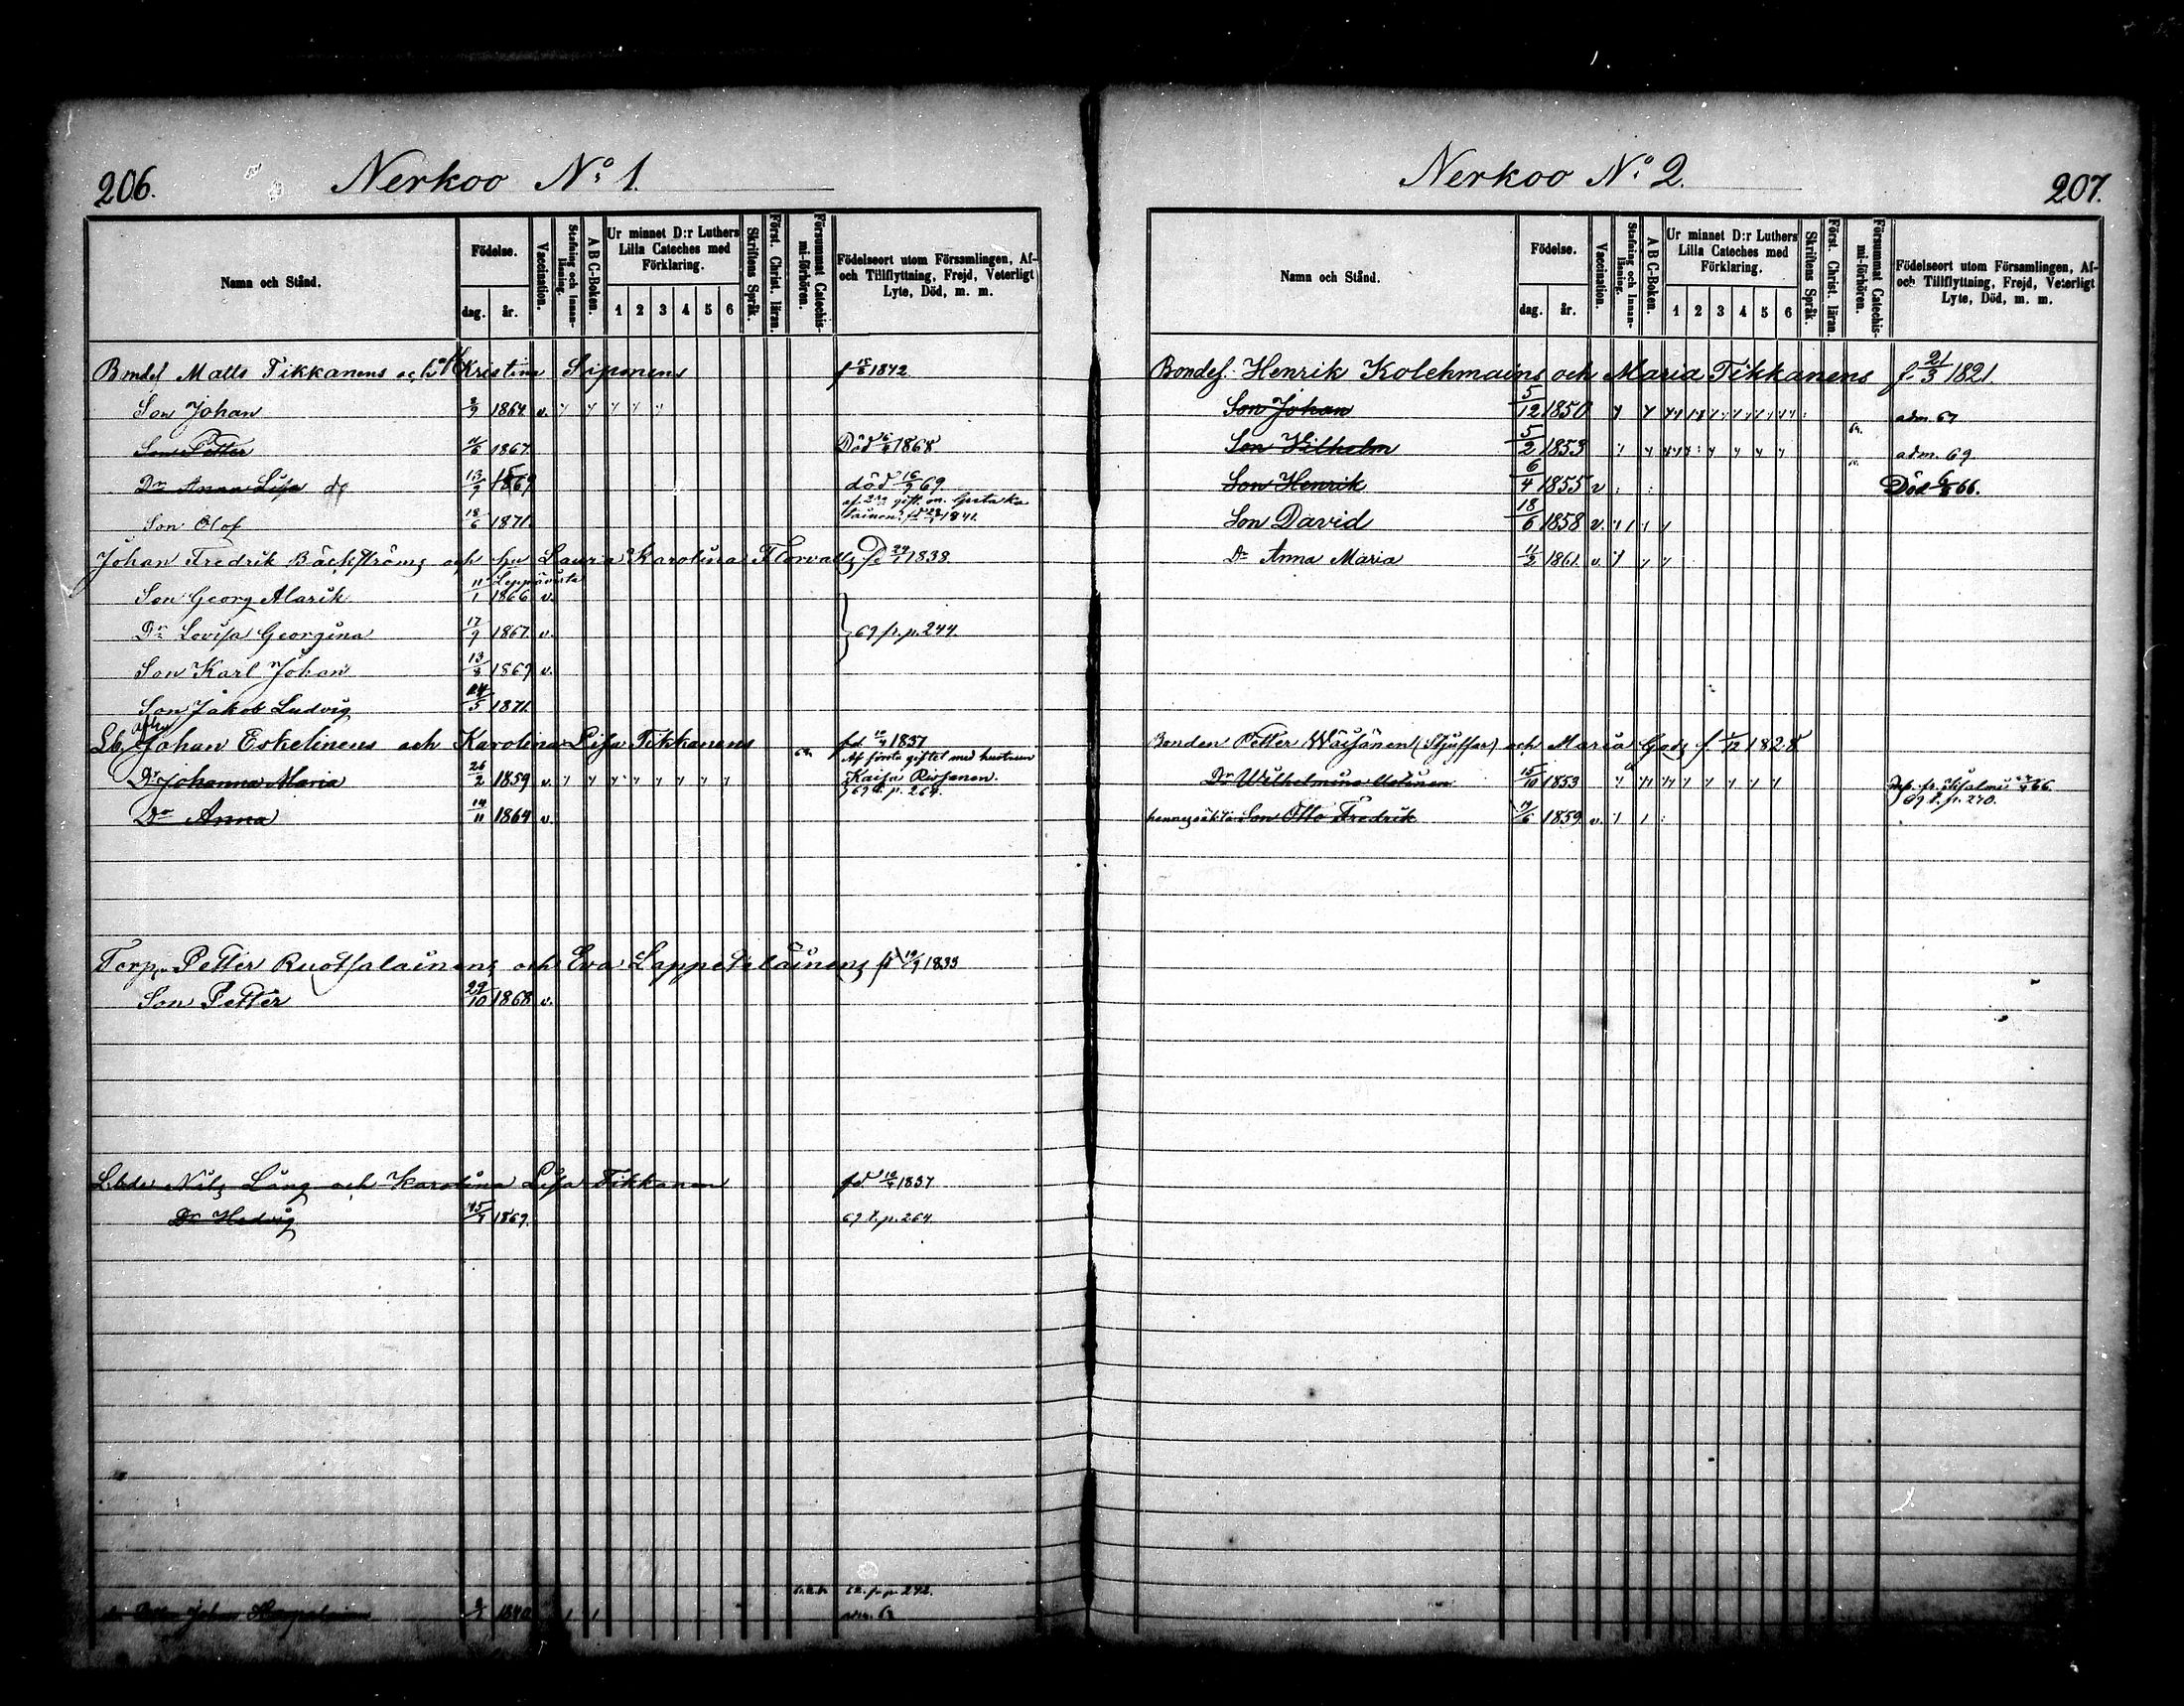 206.
Nerkoo No 1.
Nama och Stånd.
Födelse.
dag.
år.
Vaccination.
Stafning och Innanläsning.
A B C-Boken.
Ur minnet D:r Luthers Lilla Cateches med Förklaring.
1 2 3 4 5 6
Skriftens Språk.
Först. Christ. läran.
Försummat Catechismi-förhören.
Födelseort utom Församlingen, Af- och Tillflyttning, Frejd, Veterligt Lyte, Död, m. m.
Bondes Matts Tikkanens och Kristina Siponens 1842
Son Johan 1864 v.
Son Petter 1867 Död 1868
Dr Anna Lisa 13/9 1869 död 16/9 69.
Son Olof 18/6 1871 1841.
Johan Fredrik Bäckströms och hu Laura Karolina Florvalls 1838
Leppävirta
Son Georg Alarik 11/1 1866 v.
Dr Lovisa Georgina 17/9 1867 v. 69 fr. p. 244.
Son Karl Johan 13/8 1869 v.
Son Jakob Ludvig 24/5 1871
Johan Eskelinens och Karolina Lisa Tikkanens 1837
Af första giftet med hustrun
Dr Johanna Maria 26/2 1859 v. Kaisa
69 t. p. 264.
Dr Anna 14/11 1864 v.
Torp. Petter Ruotsalainens och Eva Lappetelainens 1833
Son Petter 29/10 1868 v.
Nils Lång och Karolina Lisa Tikkanen 1837
Dr Hedvig 1869 69 t. p. 264
Johan 1840
207.
Nerkoo No 2.
Nama och Stånd.
Födelse.
dag.
år.
Vaccination.
Stafning och Innanläsning.
A B C-Boken.
Ur minnet D:r Luthers Lilla Cateches med Förklaring.
1 2 3 4 5 6
Skriftens Språk.
Först. Christ. läran.
Försummat Catechismi-förhören.
Födelseort utom Församlingen, Af- och Tillflyttning, Frejd, Veterligt Lyte, Död, m. m.
Bondes. Henrik Kolehmains och Maria Tikkanens f. 21/3 1821.
Son Johan 5/12 1850 adm. 67
Son Vilhelm 5/2 1853 adm. 69.
Son Henrik 6/4 1855 v Död 66.
Son David 18/6 1858 v.
Dr Anna Maria 11/2 1861 v.
Bonden Petter Wäisänen och Maria 1828
Dr Wilhelmina 15/10 1853 66.
69 t. p. 270.
Son Otto Fredrik 1859 v.